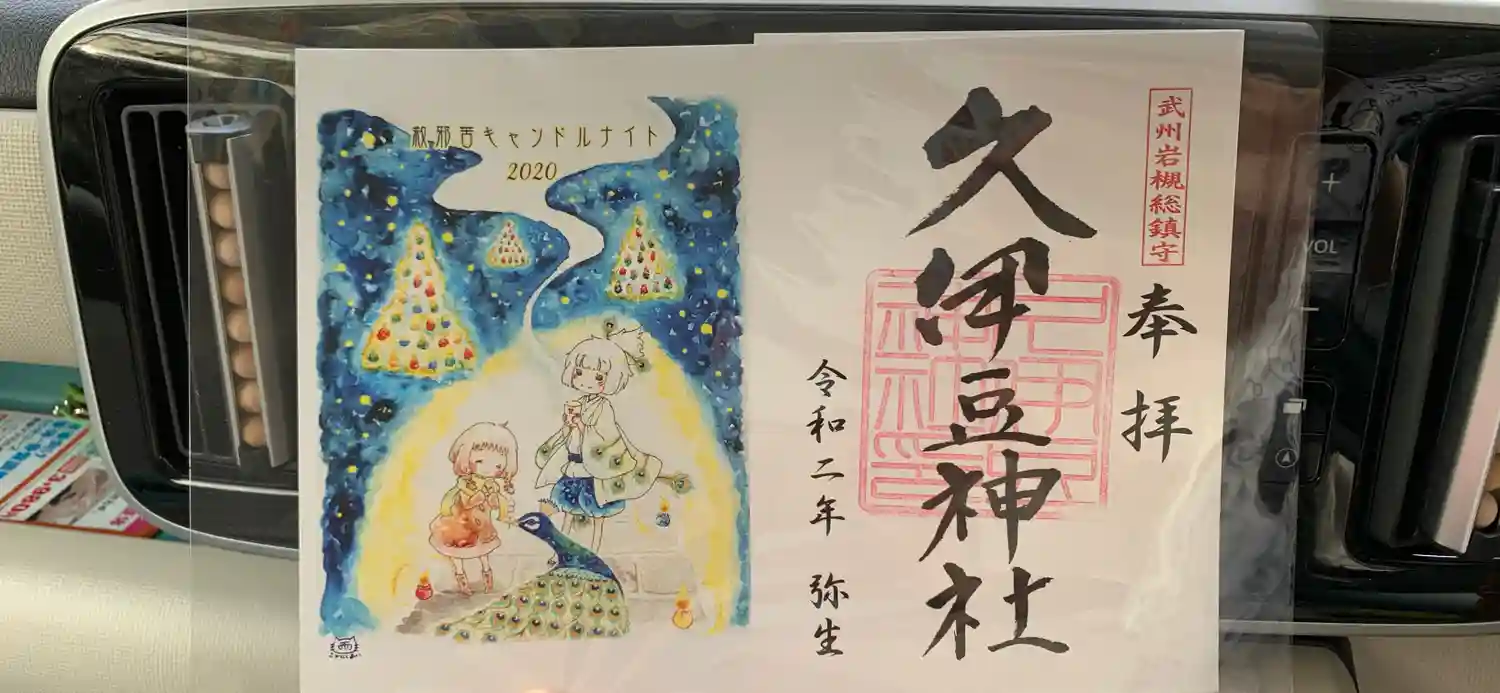 敖邪苦キャンドルナイト
2020
武州岩槻総鎮守
奉拝
久伊豆神社
令和二年 弥生
西
VOL